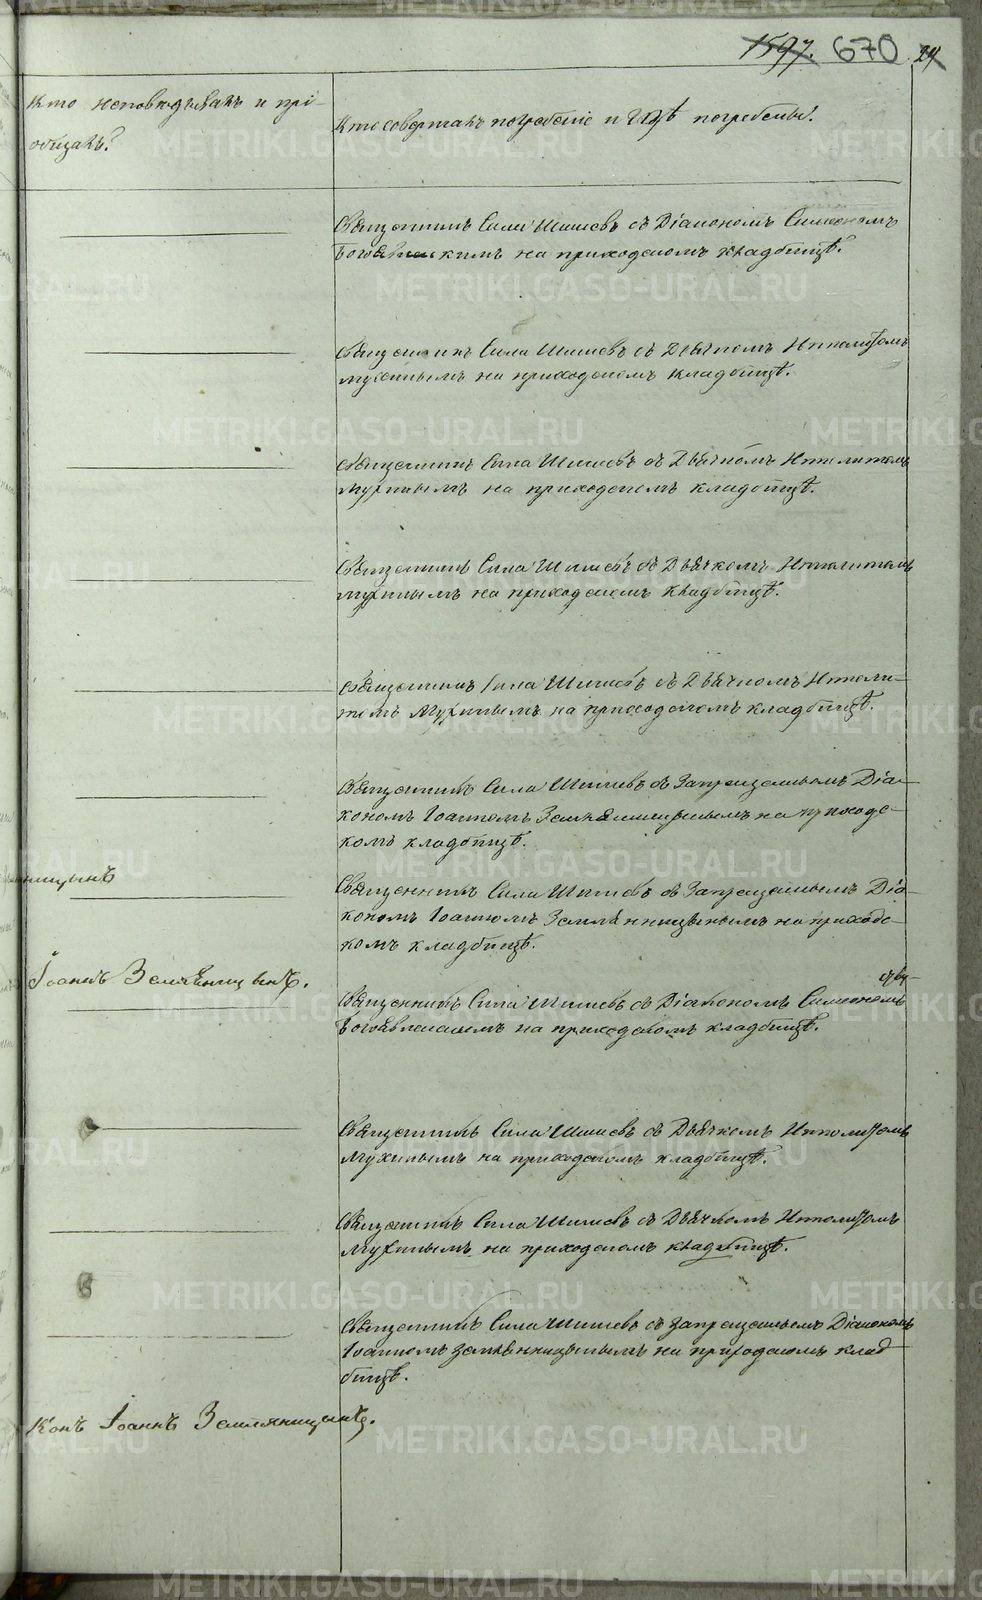 1597. 670 24
Кто исповѣдывалъ и прі-
общалъ?
Кто совершалъ погребеніе и гдѣ погребены?
Священникъ Сила Шишевъ съ Діакономъ Симеономъ
Богоявленскимъ на приходскомъ кладбищѣ.
Священникъ Сила Шишевъ съ Дьячкомъ Ипполитомъ
Мухинымъ на приходскомъ кладбищѣ.
Священникъ Сила Шишевъ съ Дьячкомъ Ипполитомъ
Мухинымъ на приходскомъ кладбищѣ.
Священникъ Сила Шишевъ съ Дьячкомъ Ипполитомъ
Мухинымъ на приходскомъ кладбищѣ.
Священникъ Сила Шишевъ съ Дьячкомъ Иполи-
томъ Мухинымъ на приходскомъ кладбищѣ.
Священникъ Сила Шишевъ съ Запрещеннымъ Діа-
кономъ Іоанномъ Земляницынымъ на приходс-
комъ кладбищѣ.
ницынъ
Священникъ Сила Шишевъ съ Запрещеннымъ Діа-
кономъ Іоанномъ Земляницынымъ на приходс-
комъ кладбищѣ.
Іоаннъ Земляницынъ.
Священникъ Сила Шишевъ съ Діакономъ Симеономъ
Богоявленскимъ на приходскомъ кладбищѣ.
Священникъ Сила Шишевъ съ Дьячкомъ Ипполитомъ
Мухинымъ на приходскомъ кладбищѣ.
Священникъ Сила Шишевъ съ Дьячкомъ Ипполитомъ
Мухинымъ на приходскомъ кладбищѣ.
Священникъ Сила Шишевъ съ запрещеннымъ Діакономъ
Іоанномъ Земляницынымъ на приходскомъ клад
бищѣ.
конъ Іоаннъ Земляницынъ.
METRIKI.GASO-URAL.RU